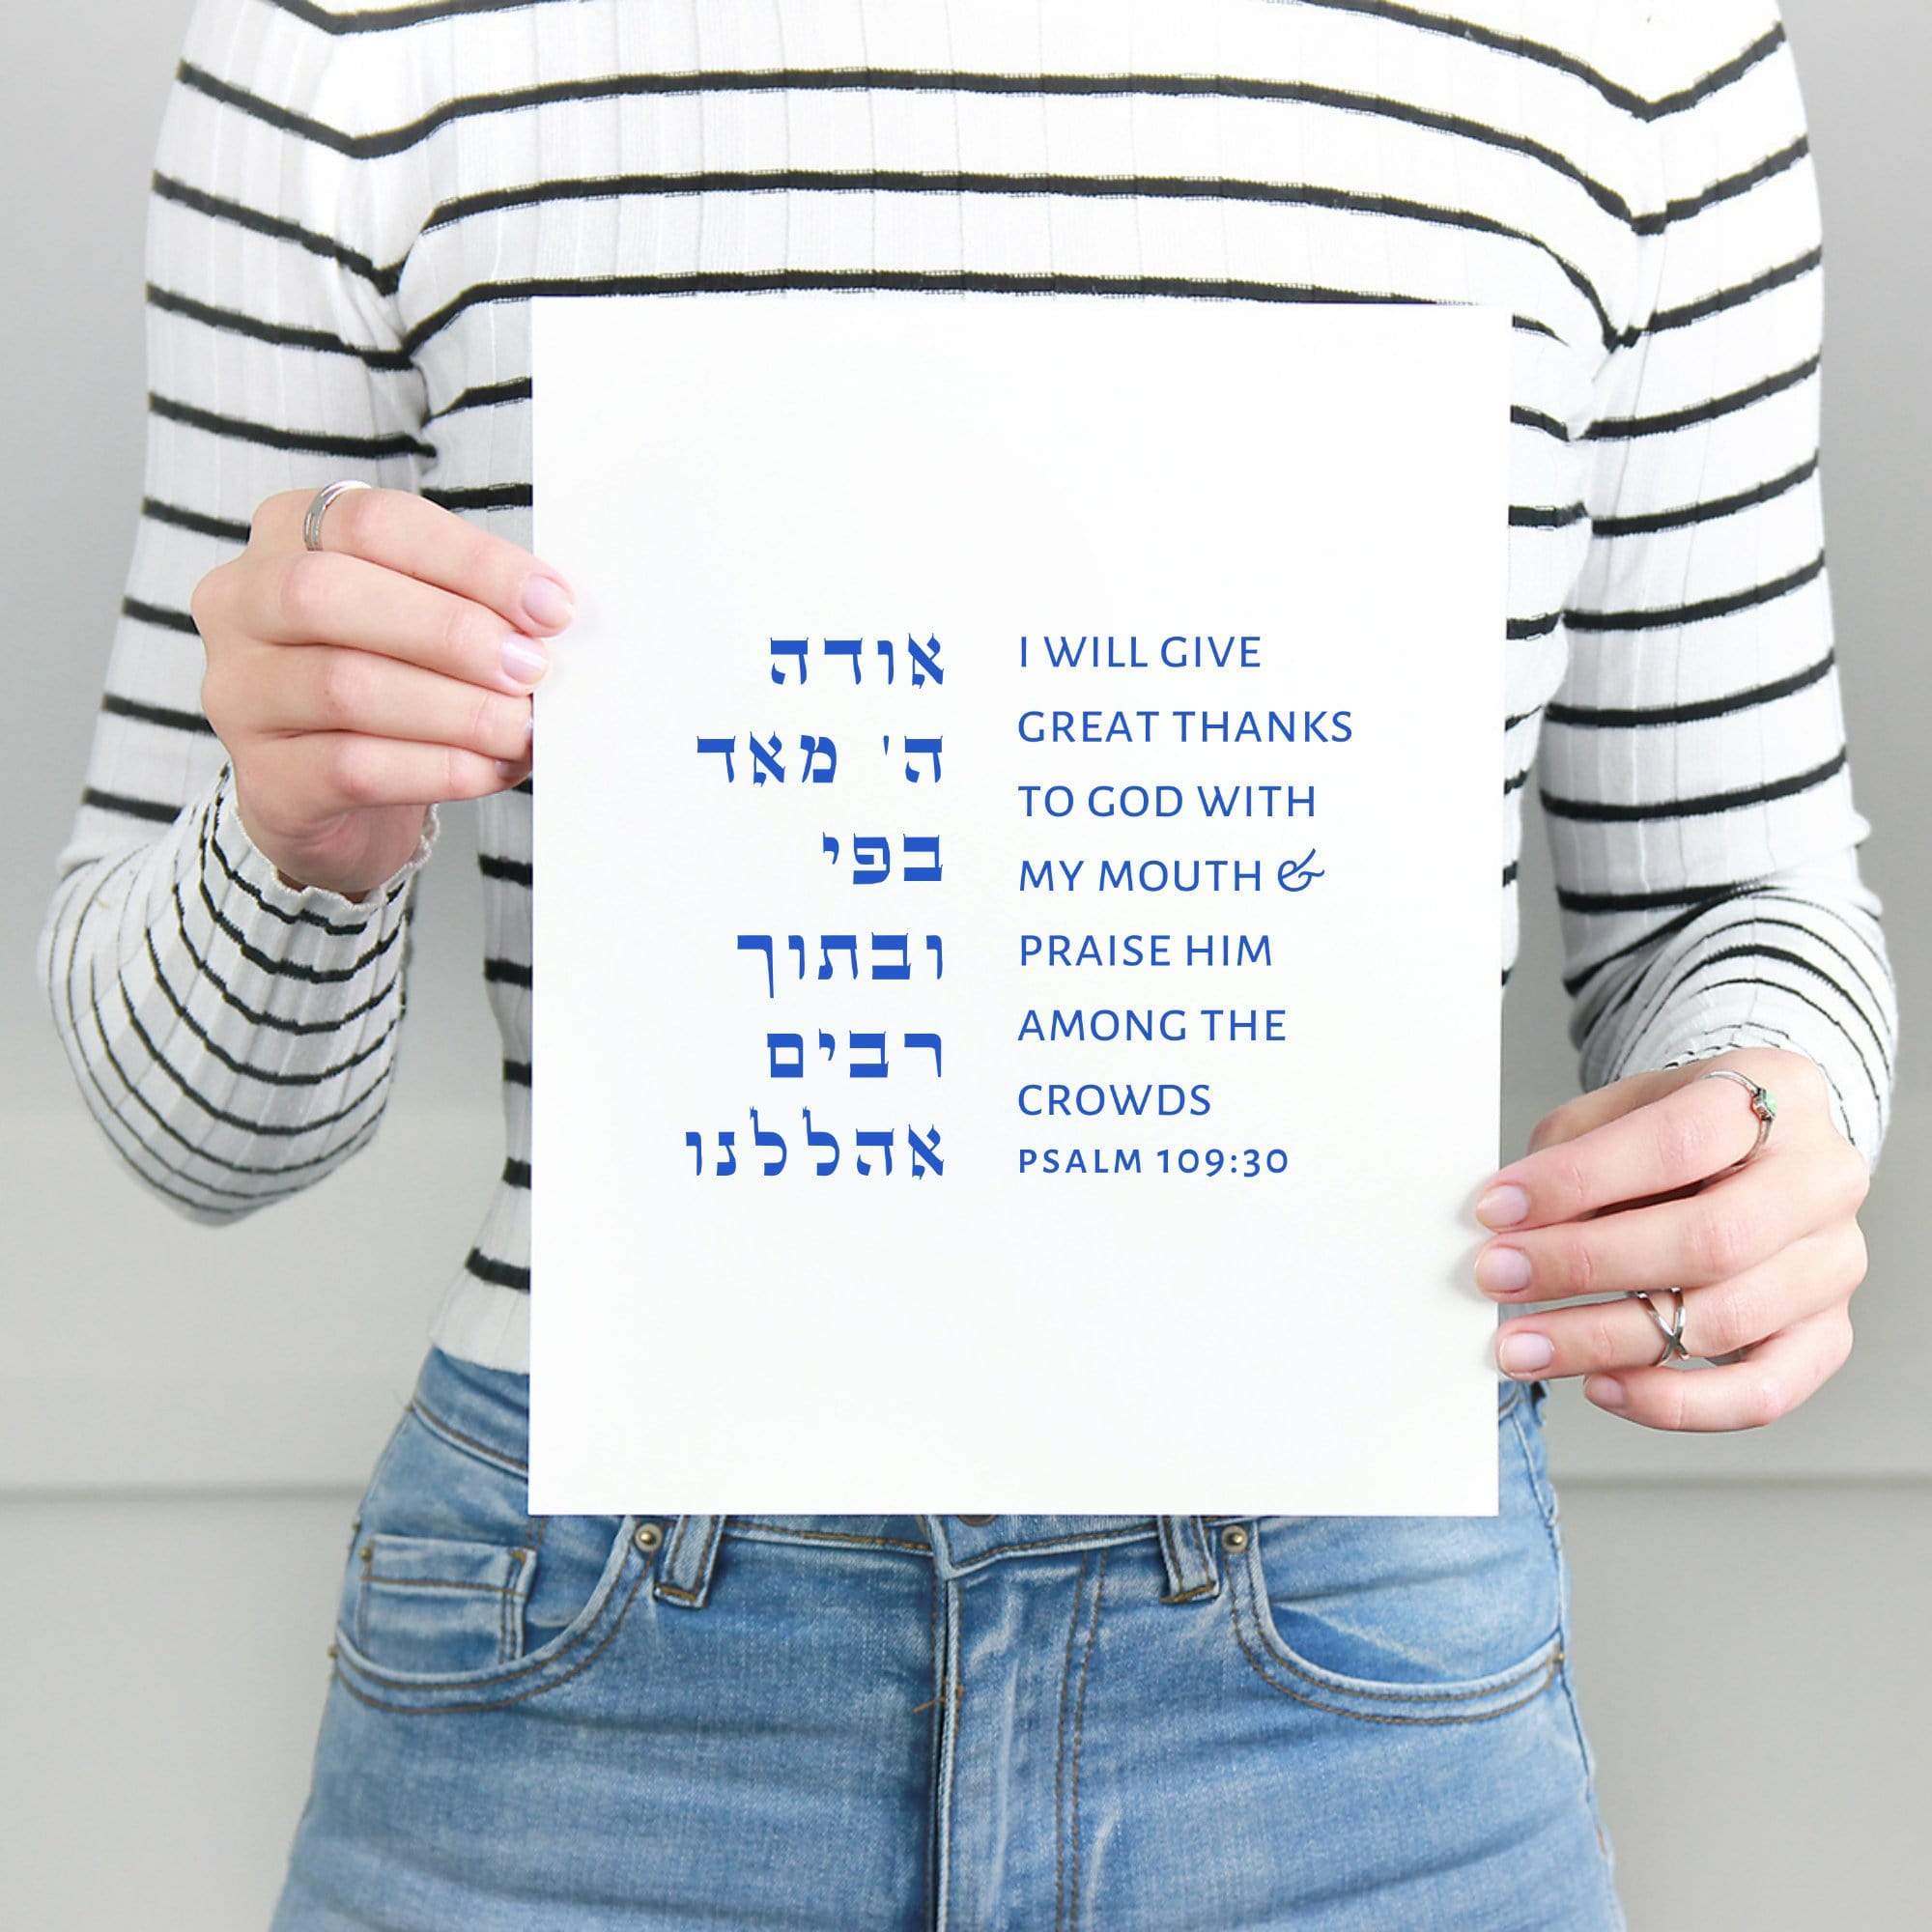 אודה
ה' מאד
בפי
ובתוך
רבים
אהללנו
I WILL GIVE
GREAT THANKS
TO GOD WITH
MY MOUTH &
PRAISE HIM
AMONG THE
CROWDS
PSALM 109:30